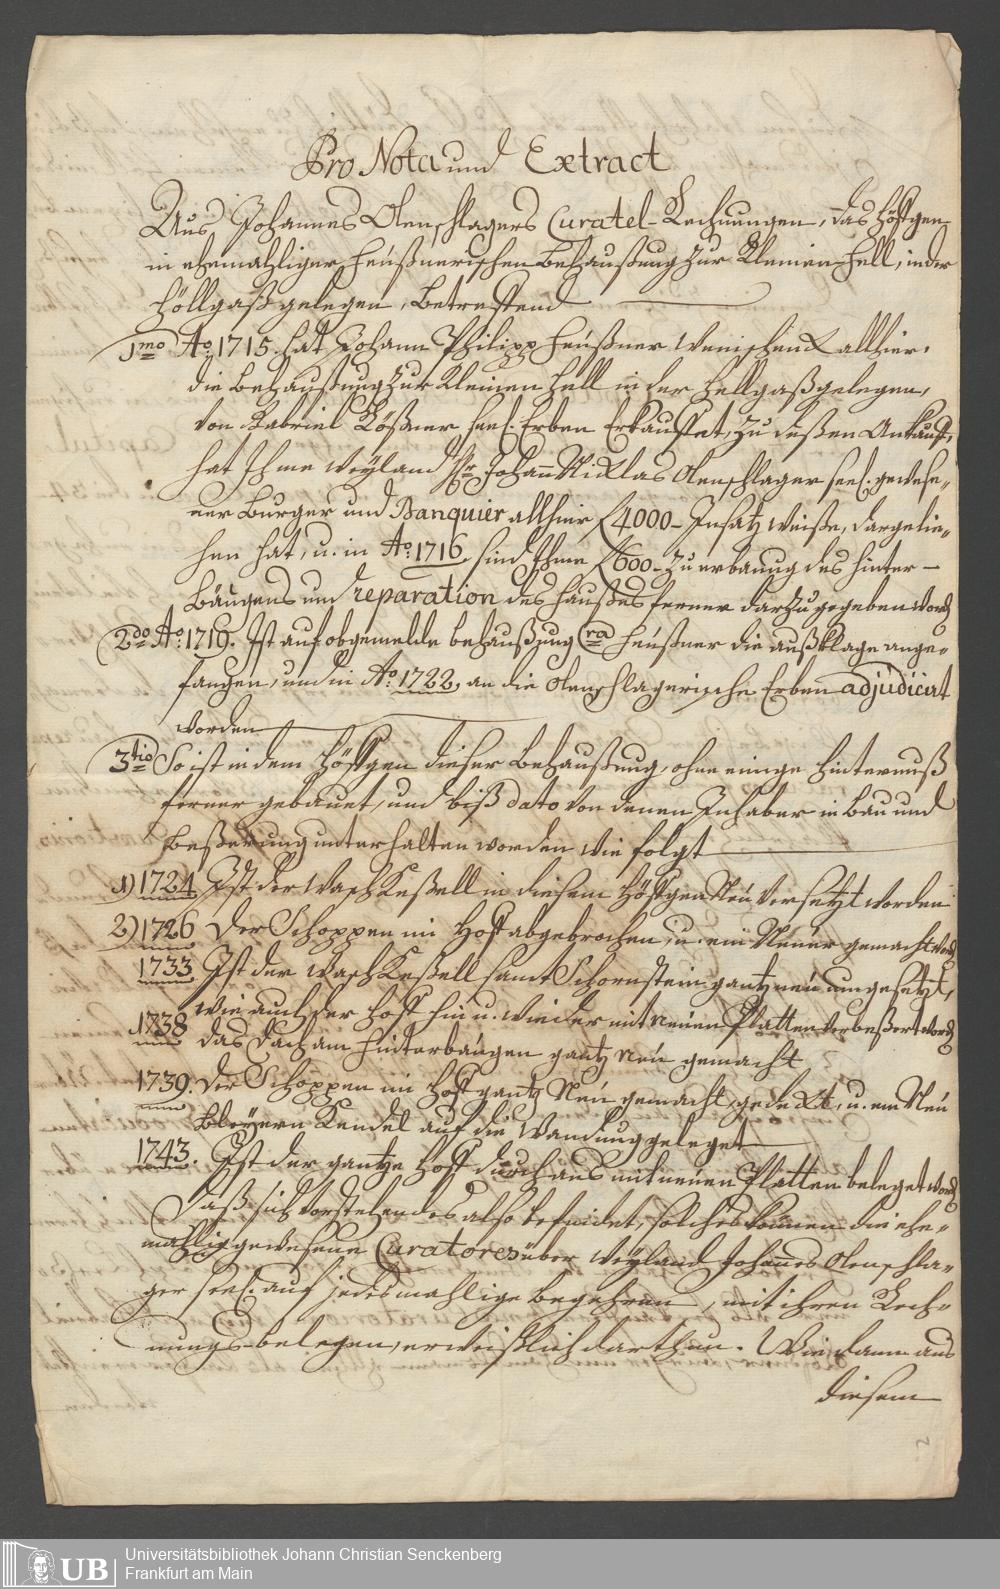 Pro Nota und Extract
Aus Johannes Olenschlagers Curatel-Rechnungen, das Höffgen
in ehemahliger Heüßnerischen Behaußung zur Kleinen Hell, in der
Höllgaß gelegen, Betreffend
1mo Ao. 1715. hat Johann Philipp Heüßner Weinschenck allhier,
die Behaußung zur Kleinen Hell in der Hellgaß gelegen,
von Gabriel Rößner seel. Erben Erkauffet, zu deßen Ankauff,
hat Ihme weyland Hr. Johann Nicklas Olenschlager seel. gewese„
ner Burger und Banquier allhier f 4000 Insatz weiße, dargelie„
hen hat, u. in Ao. 1716. sind Ihme f 600 zu erbauung des hinter-
Bäugens und reparation des Haußes ferner darzu gegeben word
2do Ao. 1719. Ist auf obgemelde behaußung Heüßner die außklage ange„
fangen, und in Ao. 1722. an die Olenschlagerische Erben adjudicirt
worden
3tio So ist in dem Höffgen dieser Behaußung, ohne einige Hinternuß
ferner gebauet, und biß dato von denen Inhaber in Bau und
Beßerung unterhalten worden wie folgt
1) 1724 Ist der Wasch Keßell in diesem Höffgen Neü versetzt worden
2) 1726 Der Schoppen im Hoff abgebrochen, u. ein Neüer gemacht word
1733 Ist der Wasch Keßell samt Schornstein gantz neü umgesetzt,
wie auch der Hoff hin u. wieder mit neüen Platten verbeßert word
1738 das Dach am Hinterbäugen gantz neü gemacht
1739. Der Schoppen im Hoff gantz Neü gemacht, gedeckt, u. ein Neü
Bleyern Kendel auf die Wandung geleget
1743. Ist der gantze Hoff durchaus mit neüen Platten beleget word
Daß sich vorstehendes also befindet, solches können die ehe„
mahlig gewesene Curatores über weyland Johannes Olenschla„
ger seel. auf jedesmahlige begehren, mit ihren Rech„
nungs-belegen, erweißlich darthun. Wie dann aus
diesem
2
UB
Universitätsbibliothek Johann Christian Senckenberg
Frankfurt am Main